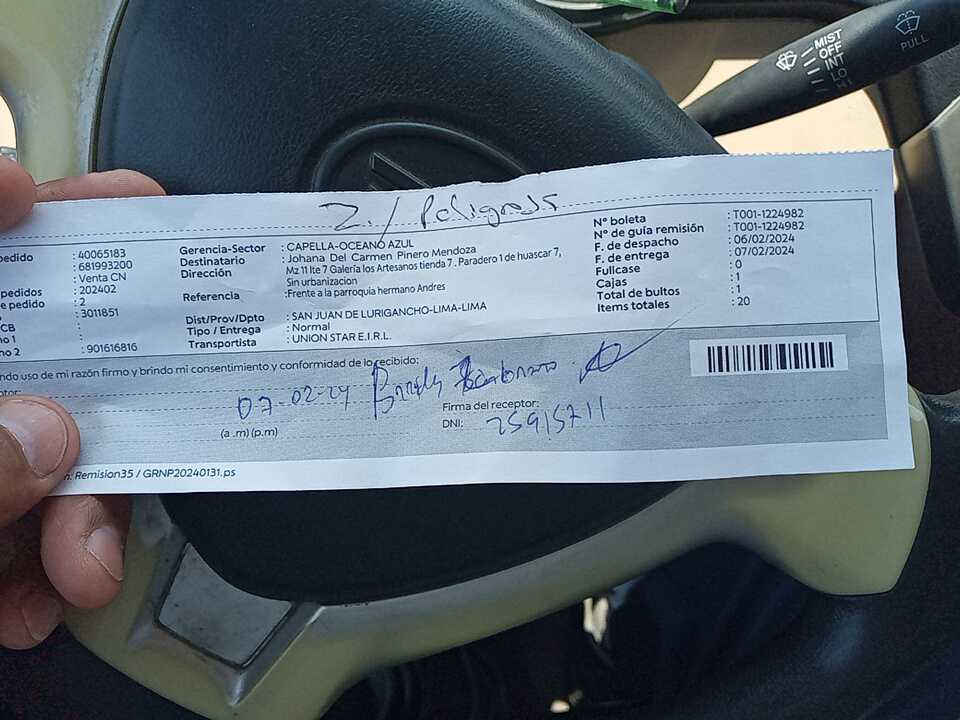 MIST
OFF
INT
LO
HI
PULL
Z./ Peligrosa
pedido : 40065183
681993200
: Venta CN
pedidos : 202402
e pedido : 2
: 3011851
CB :
no 1 :
no 2 : 901616816
Gerencia-Sector : CAPELLA-OCEANO AZUL
Destinatario : Johana Del Carmen Pinero Mendoza
Dirección Mz 11 lte 7 Galería los Artesanos tienda 7 . Paradero 1 de huascar 7,
Sin urbanizacion
Referencia :Frente a la parroquia hermano Andres
Dist/Prov/Dpto : SAN JUAN DE LURIGANCHO-LIMA-LIMA
Tipo / Entrega : Normal
Transportista : UNION STAR E.I.R.L.
N° boleta : T001-1224982
N° de guía remisión : T001-1224982
F. de despacho : 06/02/2024
F. de entrega : 07/02/2024
Fullcase : 0
Cajas : 1
Total de bultos : 1
Items totales : 20
ndo uso de mi razón firmo y brindo mi consentimiento y conformidad de lo recibido:
ptor:
07-02-24
(a .m) (p.m)
Firma del receptor:
DNI: 25915711
n: Remision35 / GRNP20240131.ps